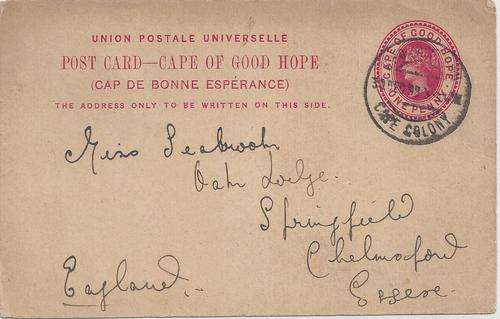 UNION POSTALE UNIVERSELLE
POST CARD—CAPE OF GOOD HOPE
(CAP DE BONNE ESPÉRANCE)
THE ADDRESS ONLY TO BE WRITTEN ON THIS SIDE.
CAPE OF GOOD HOPE
ONE PENNY
CAPE COLONY
Miss Seabrook
Oak Lodge.
Springfield
Chelmsford
Essex.
England.